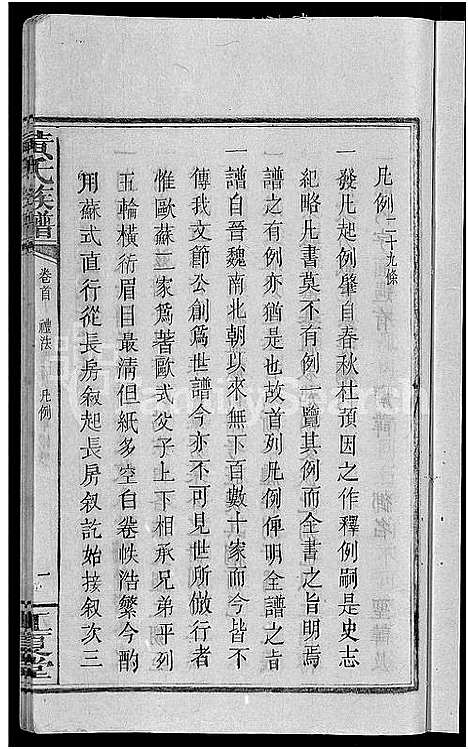 凡例二十九條
一發凡起例肇自春秋杜預因之作釋例嗣是史志
紀略凡書莫不有例一覽其例而全書之旨明焉
譜之有例亦猶是也故首列凡例俾明全譜之旨
一譜自晉魏南北朝以來無下百數十家而今皆不
傳我文節公創爲世譜今亦不可見世所倣行者
惟歐蘇二家爲著歐式父子上下相承兄弟平列
五輪橫術眉目最清但紙多空白卷帙浩繁今酌
用蘇式直行從長房叙起長房叙訖始接叙次三
黃氏族譜
卷首
禮法
凡例
一
江夏堂